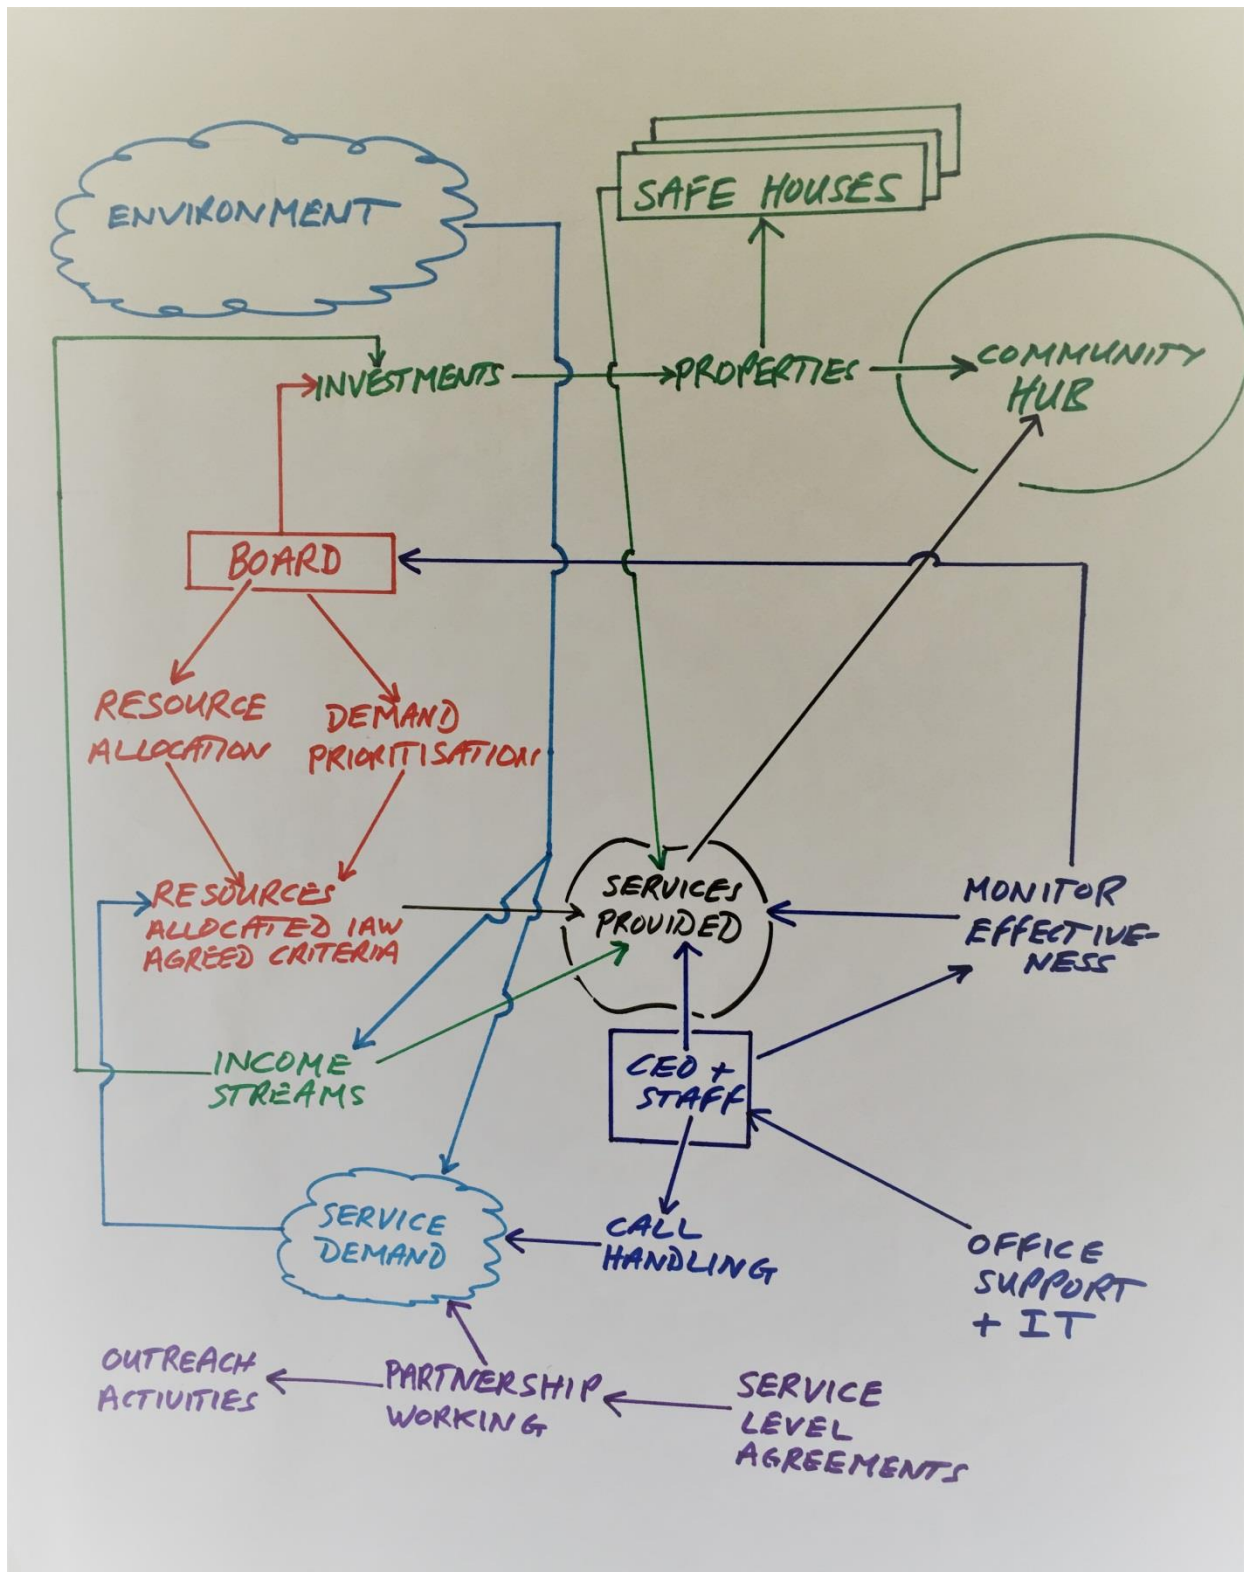 SAFE HOUSES
ENVIRONMENT
INVESTMENTS
PROPERTIES
COMMUNITY
HUB
BOARD
RESOURCE
ALLOCATION
DEMAND
PRIORITISATION
RESOURCES
ALLOCATED IAW
AGREED CRITERIA
SERVICES
PROVIDED
MONITOR
EFFECTIVE-
NESS
INCOME
STREAMS
CEO +
STAFF
SERVICE
DEMAND
CALL
HANDLING
OFFICE
SUPPORT
+ IT
OUTREACH
ACTIVITIES
PARTNERSHIP
WORKING
SERVICE
LEVEL
AGREEMENTS